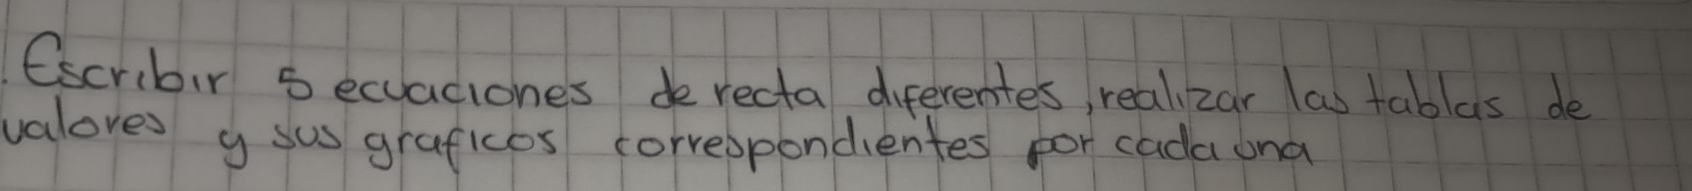 Escribir 5 ecuaciones de recta diferentes, realizar las tablas de
valores y sus graficos correspondientes por cada una